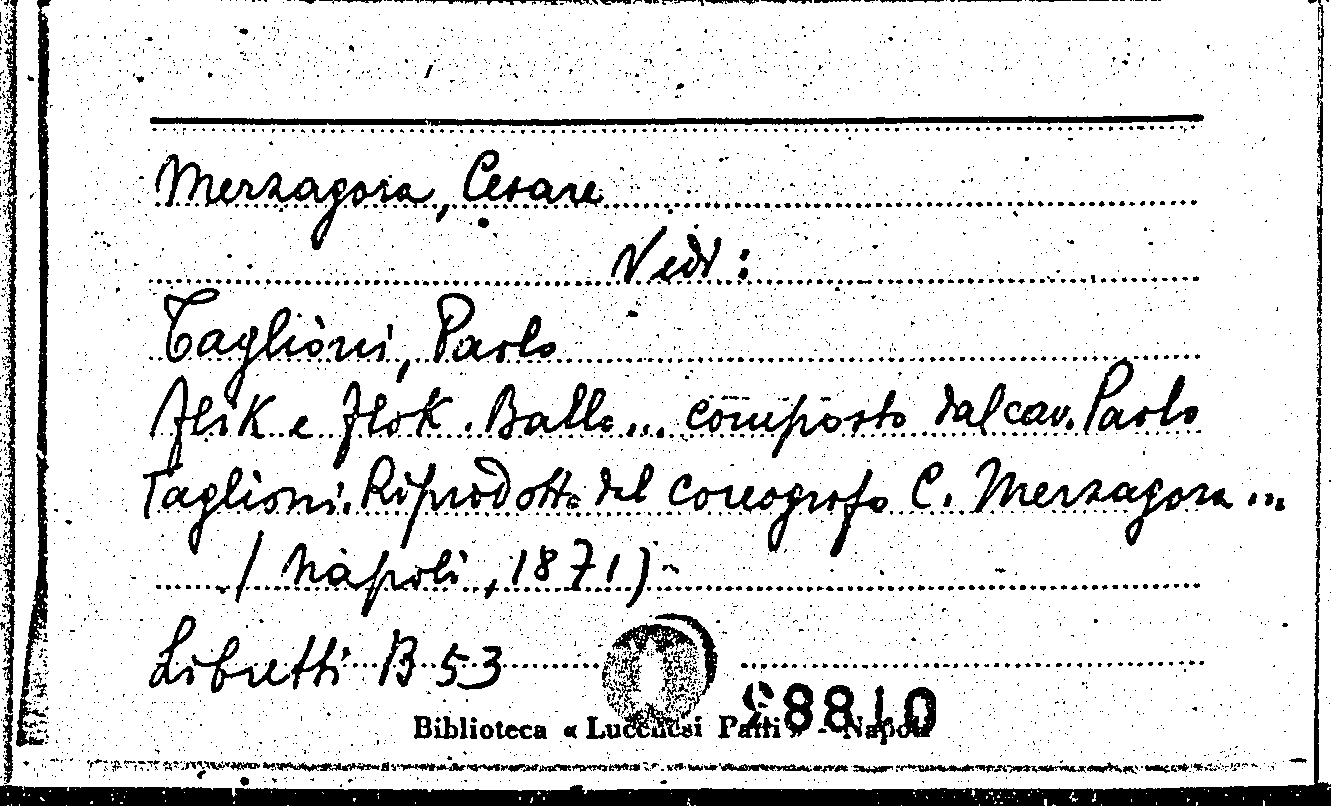 Merzagora, Cesare
Vedi:
Taglioni, Paolo
Flik e Flok. Ballo... composto dal cav. Paolo
Taglioni. Riprodotto dal coreografo C. Merzagora...
(Napoli, 1871)
Libretti B 53
28810
Biblioteca « Lucchesi Palli » - Napoli